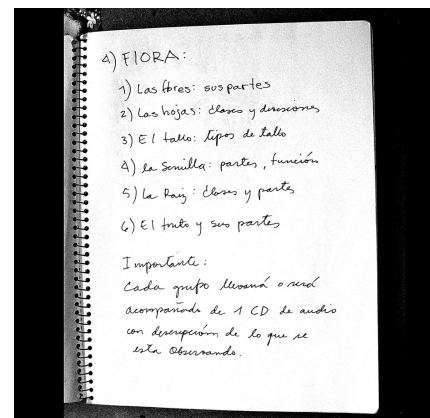 4) FLORA:
1) Las flores: sus partes
2) Las hojas: clases y
3) El tallo: tipos de tallo
4) la Semilla: partes, función
5) La Raiz: clases y partes
6) El fruto y sus partes
Importante:
Cada grupo llevará o será
acompañado de 1 CD de audio
con descripción de lo que se
esta Observando.